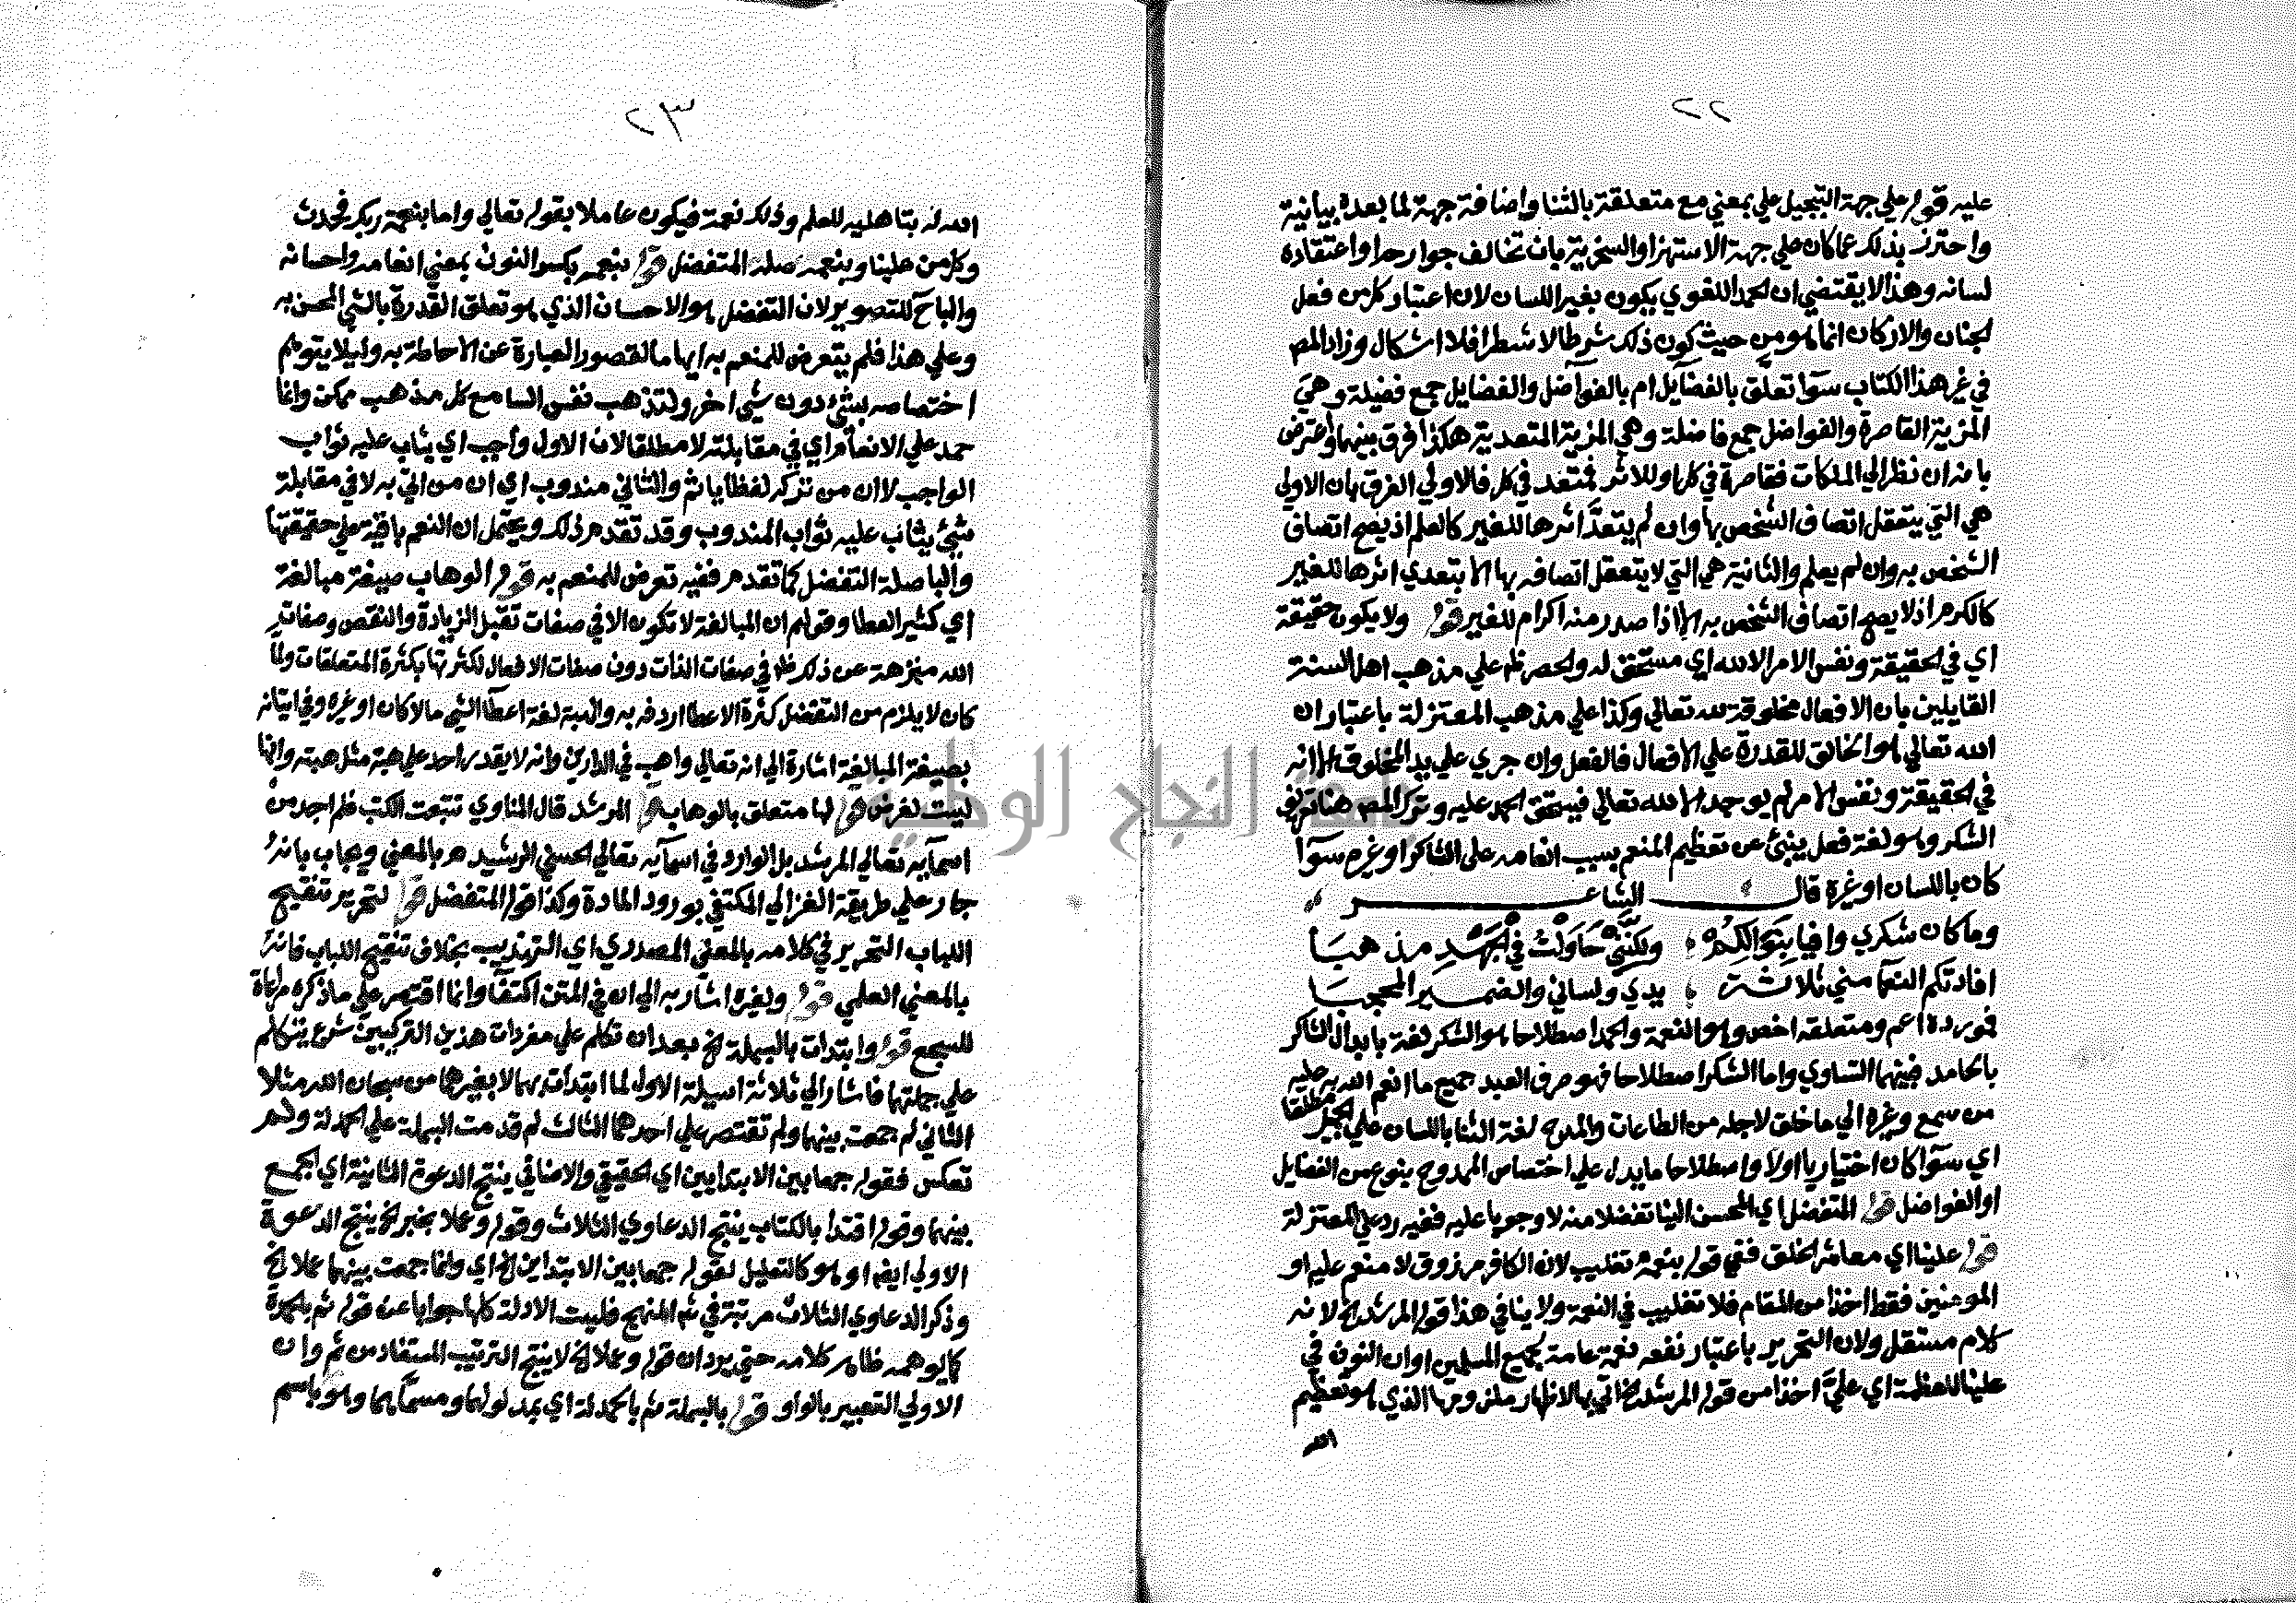 ٢٢
عليه قوله علي جهة التبجيل علي بمعني مع متعلقة بالثنا واضافة جهة لما بعده بيانية
واحترز بذلك عما كان علي جهة الاستهزا والسخرية بان تخالف جوارحه واعتقاده
لسانه وهذا لا يقتضي ان لحمد اللغوي يكون بغير اللسان لان اعتبار كل من فعل
لجنان والاركان انما هو من حيث كون ذلك شرطا لا شطرا فلا اشكال وزاد المص
في غير هذا الكتاب سوآ تعلق بالفضآيل ام بالفواضل والفضايل جمع فضيلة وهي
المزية القاصرة والفواضل جمع فاضلة وهي المزية المتعدية هكذا فرق بينهما واعترض
بانه ان نظر الي الملكات فقاصرة في كل او للاثر فمتعد في كل فالاولي الفرق بان الاولي
هي التي يتعقل اتصاف الشخص بها وان لم يتعد اثرها للغير كالعلم اذ يصح اتصاف
الشخص به وان لم يعلم والثانية هي التي لا يتعقل اتصافه بها الا بتعدي اثرها للغير
كالكرم اذ لا يصح اتصاف الشخص به الا اذا صدر منه اكرام للغير قوله ولا يكون حقيقة
اي في لحقيقة ونفس الامر الا لله اي مستحق له ولحصر ظم علي مذهب اهل السنة
القايلين بان الافعال مخلوقة لله تعالي وكذا علي مذهب المعتزلة باعتبار ان
الله تعالي هو الخالق للقدرة علي الافعال فالفعل وان جري علي يد المخلوق الا انه
في لحقيقة ونفس الامر لم يوجد الا لله تعالي فيستحق لحمد عليه وترك المص هنا تعريف
الشكر وهو لغة فعل ينبئ عن تعظيم المنعم بسبب انعامه علي الشاكر او غيره سوآ
كان باللسان او غيره قال الشاعر
وما كان شكري وافيا بنوالكم ولكنني حاولت في الجهد مذهبا
افادتكم النعما مني ثلاثة يدي ولساني والضمير المحجبا
فمورده اعم ومتعلقه اخص وهو النعمة ولحمد اصطلاحا هو الشكر لغة بابدال الشاكر
بالحامد فبينهما التساوي واما الشكر اصطلاحا فهو صرف العبد جميع ما انعم الله به عليه
من سمع وغيره الي ما خلق لاجله من الطاعات والمدح لغة الثنا باللسان علي لجميل مطلقا
اي سوآ كان اختياريا اولا واصطلاحا ما يدل علي اختصاص الممدوح بنوع من الفضايل
او الفواضل قوله المتفضل اي المحسن الينا تفضلا منه لا وجوبا عليه ففيه رد علي المعتزلة
قوله علينا اي معاشر لخلق ففي قوله بنعمه تغليب لان الكافر مرزوق لا منعم عليه او
المومنين فقط اخذا من المقام فلا تغليب في النعمة ولا ينافي هذا قوله المرشد لخ لانه
كلام مستقل ولان التحرير باعتبار نفعه نعمة عامة لجميع المسلمين او ان النون في
علينا للعظمة اي علي اخذا من قوله المرشد لخ اتي بها لاظهار ملزومها الذي هو تعظيم
الله
٢٣
الله له بتاهليه للعلم وذلك نعمة فيكون عاملا بقوله تعالي واما بنعمة ربك فحدث
وكل من علينا وبنعمه صلة المتفضل قوله بنعمه بكسر النون بمعني انعامه واحسانه
والبآ للتصوير لان التفضل هو الاحسان الذي هو تعلق القدرة بالشي المحسن به
وعلي هذا فلم يتعرض للمنعم به ايهاما لقصور العبارة عن الاحاطة به وليلا يتوهم
اختصاصه بشئ دون شي اخر ولتذهب نفس السامع كل مذهب ممكن وانما
حمد علي الانعام اي في مقابلته لا مطلقا لان الاول واجب اي يثاب عليه ثواب
الواجب لا ان من تركه لفظا ياثم والثاني مندوب اي ان من اتي به لا في مقابلة
شئ يثاب عليه ثواب المندوب وقد تقدم ذلك ويحتمل ان النعم باقية علي حقيقتها
والبا صلة التفضل كما تقدم ففيه تعرض للمنعم به قوله الوهاب صيغة مبالغة
اي كثير العطا وقولهم ان المبالغة لا تكون الا في صفات تقبل الزيادة والنقص وصفات
الله منزهة عن ذلك ظم في صفات الذات دون صفات الافعال لكثرتها بكثرة المتعلقات ولما
كان لا يلزم من التفضل كثرة الاعطا اردفه به والهبة لغة اعطآ الشي مالا كان او غيره وفي اتيانه
بصيغة المبالغة اشارة الي انه تعالي واهب في الدارين وانه لا يقدر احد علي هبة مثل هبته وانها
ليست لغرض قوله لها متعلق بالوهاب قوله المرشد قال المناوي تتبعت الكتب فلم اجد من
اسمآيه تعالي المرشد بل الوارد في اسمآيه تعالي لحسني الرشيد هو بالمعني ويجاب بانه
جار علي طريقة الغزالي المكتفي بورود المادة وكذا قوله المتفضل قوله لتحرير تنقيح
اللباب التحرير في كلامه بالمعني المصدري اي التهذيب بخلاف تنقيح اللباب فانه
بالمعني العلمي قوله ولغيره اشار به الي انه في المتن اكتفآ وانما اقتصر علي ما ذكره مراعاة
للسجع قوله وابتدات بالبسملة لخ بعد ان تكلم علي مفردات هذين التركيبين شرع يتكلم
علي جملتها فاشار الي ثلاثة اسيلة الاول لما ابتدات بهما لا بغيرهما من سبحان الله مثلا
الثاني لم جمعت بينهما ولم تقتصر علي احدهما الثالث لم قدمت البسملة علي لحمدلة ولم
تعكس فقوله جمعا بين الابتدايين اي لحقيقي والاضافي ينتج الدعوة الثانية اي لجمع
بينهما وقوله اقتدا بالكتاب ينتج الدعاوي الثلاث وقوله وعملا بخبر لخ ينتج الدعوة
الاولي ايضا وهو كالتعليل لقوله جمعا بين الابتداين لخ اي وانما جمعت بينهما عملا لخ
وذكر الدعاوي الثلاث مرتبة في ثم المنهج فليست الادلة كلها جوابا عن قوله ثم بالحمدلة
كما يوهمه ظاهر كلامه حتي يرد ان قوله وعملا لخ لا ينتج الترتيب المستفاد من ثم وان
الاولي التعبير بالواو قوله بالبسملة ثم بالحمدلة اي بمدلولهما ومسماهما وهو باسم
جامعة النجاح الوطنية